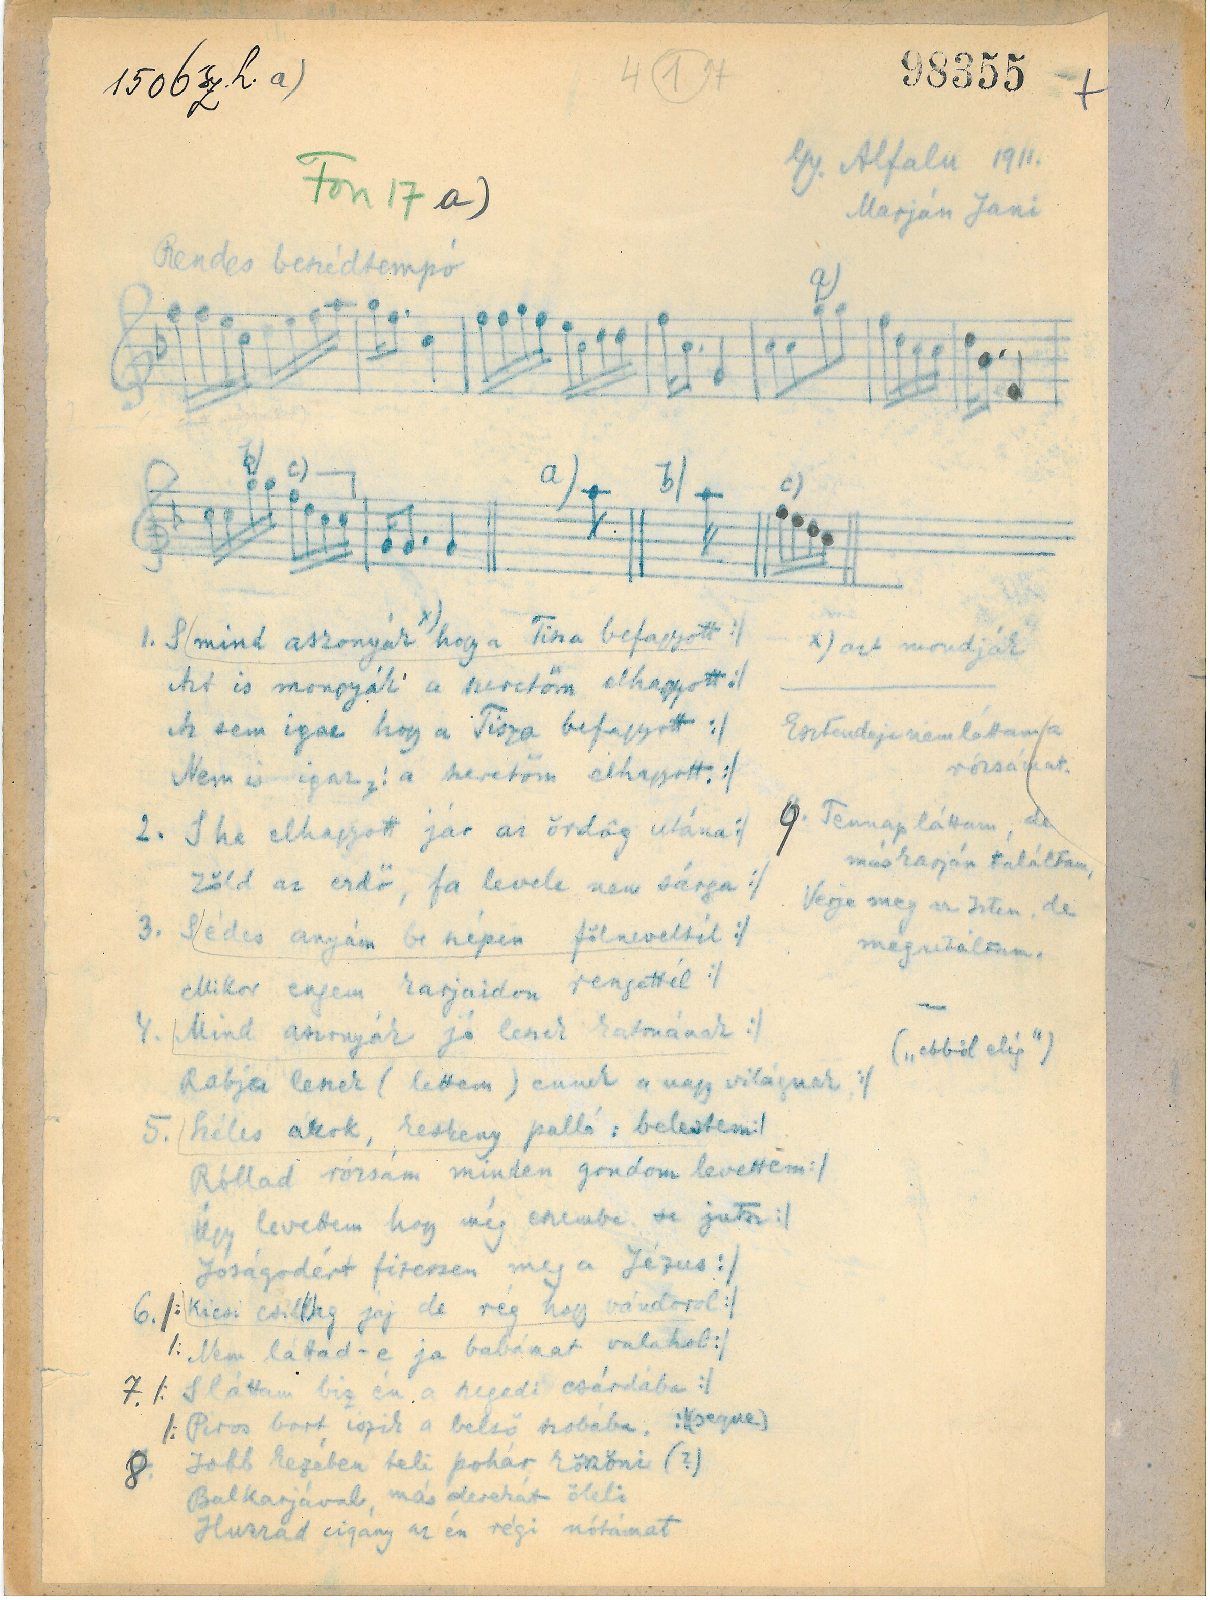 1506 sz. h. a)
4 (1) 97
98355
+
Gy. Alfalu 1911.
Marján Jani
Fon 17 a)
Rendes beszédtempó
a)
b) c) a) b) c)
1. S mind aszonyák x) hogy a Tisza befagyott :/
x) azt mondják
Azt is mongyák a szeretőm elhagyott :/
Az sem igaz hogy a Tisza befagyott :/
Nem is igaz, a szeretőm elhagyott. :/
Esztendeje nem láttam a
rózsámat.
2. S ha elhagyott jár az ördög utána :/
Zöld az erdő, fa levele nem sárga :/
9. Tennap láttam, de
más karján találtam,
Verje meg az Isten, de
megutáltam.
3. S édes anyám be szépen fölneveltél :/
Mikor engem karjaidon rengettél :/
4. Mind aszonyák jó leszek katonának :/
Rabja leszek ( lettem ) ennek a nagy világnak, :/
(„ebből elég")
5. Széles árok, keskeny palló : belestem :/
Róllad rózsám minden gondom levettem :/
Úgy levettem hogy még eszembe se jutsz :/
Jóságodért fizessen meg a Jézus :/
6. /: Kicsi csillag jaj de rég hogy vándorol :/
/: Nem láttad-e ja babámat valahol :/
7. /: S láttam biz én a szegedi csárdába :/
/: Piros bort iszik a belső szobába. :/ (seque)
8. Jobb kezében teli pohár köszöni (?)
Balkarjával, más derekát öleli
Huzzad cigány az én régi nótámat